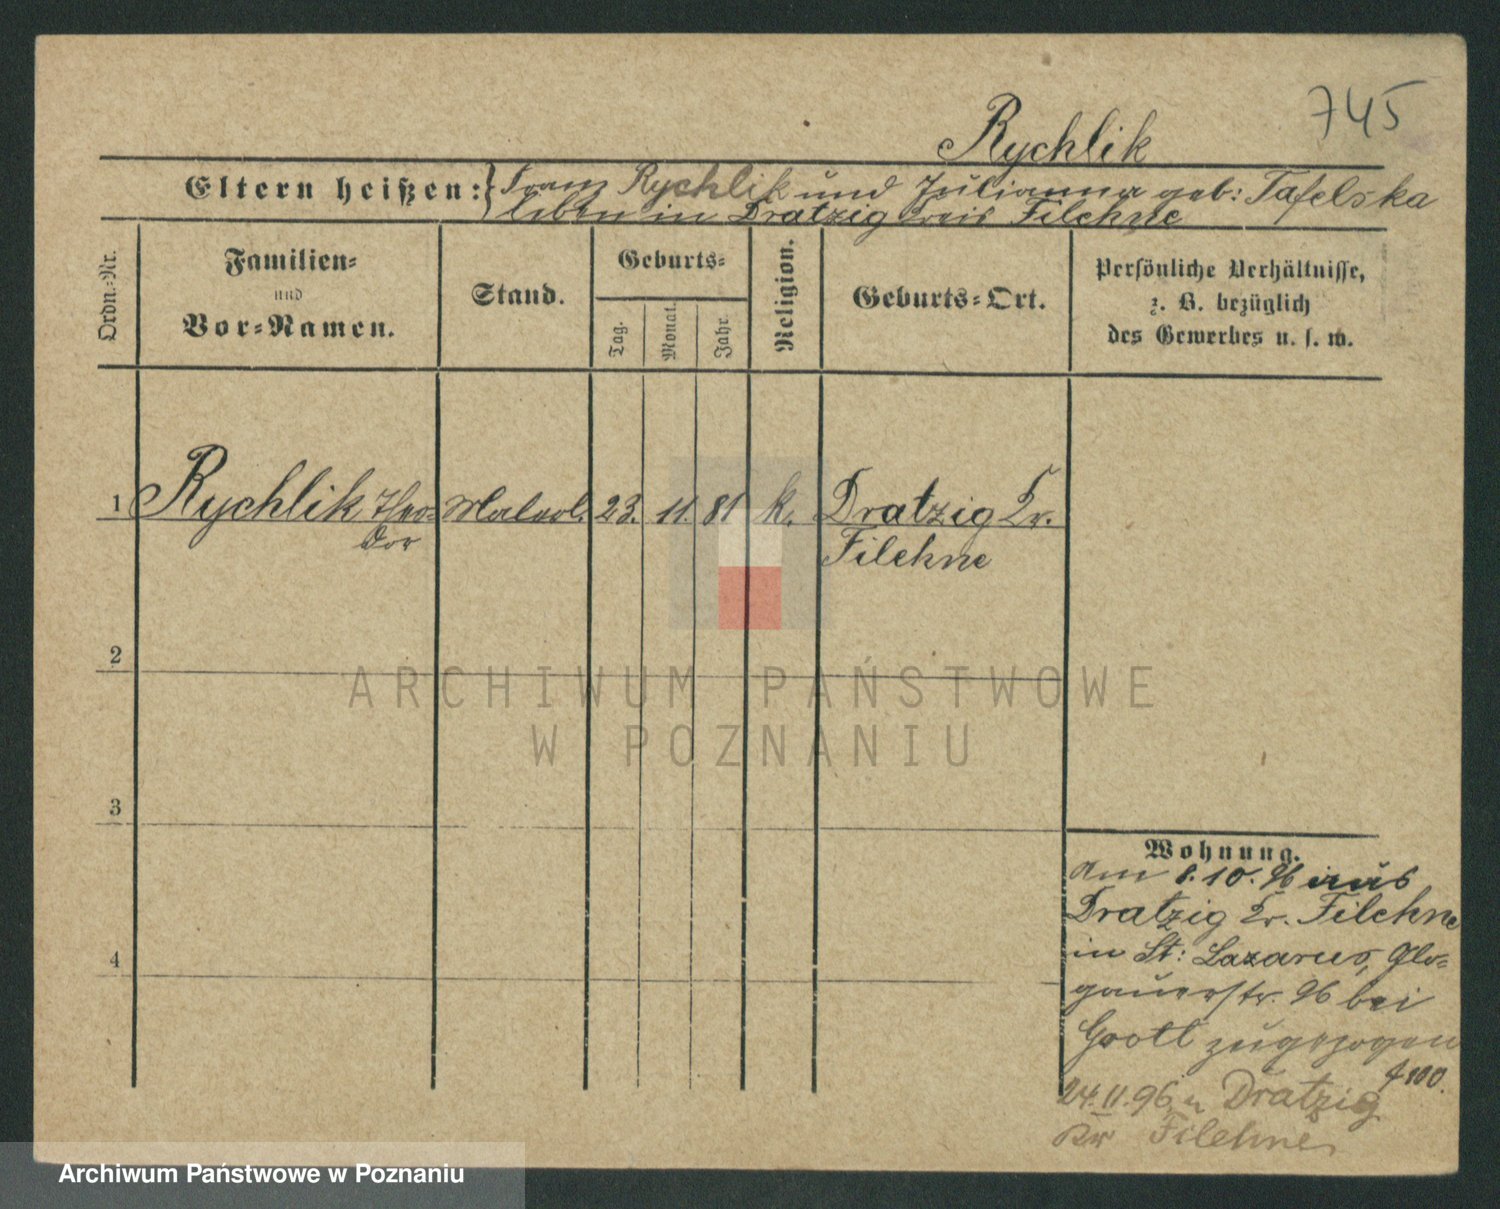 745
Rychlik
Eltern heißen: Franz Rychlik und Julianna geb: Tafelska
leben in Dratzig Kreis Filehne
Ordn.-Nr.
Familien-
und
Vor-Namen.
Stand.
Geburts-
Tag.
Monat.
Jahr
Religion.
Geburts-Ort.
Persönliche Verhältnisse,
z. B. bezüglich
des Gewerbes u. s. w.
1 Rychlik Theo- Malerl. 23. 11. 81 k. Dratzig Kr.
dor Filehne
2
3
4
Wohnung.
Am 8.10.96 aus
Dratzig Kr. Filehne
in St: Lazarus, Glo-
gauerstr. 96 bei
zugezogen
24.11.96 n Dratzig
Kr Filehne
ARCHIWUM PAŃSTWOWE
W POZNANIU
Archiwum Państwowe w Poznaniu